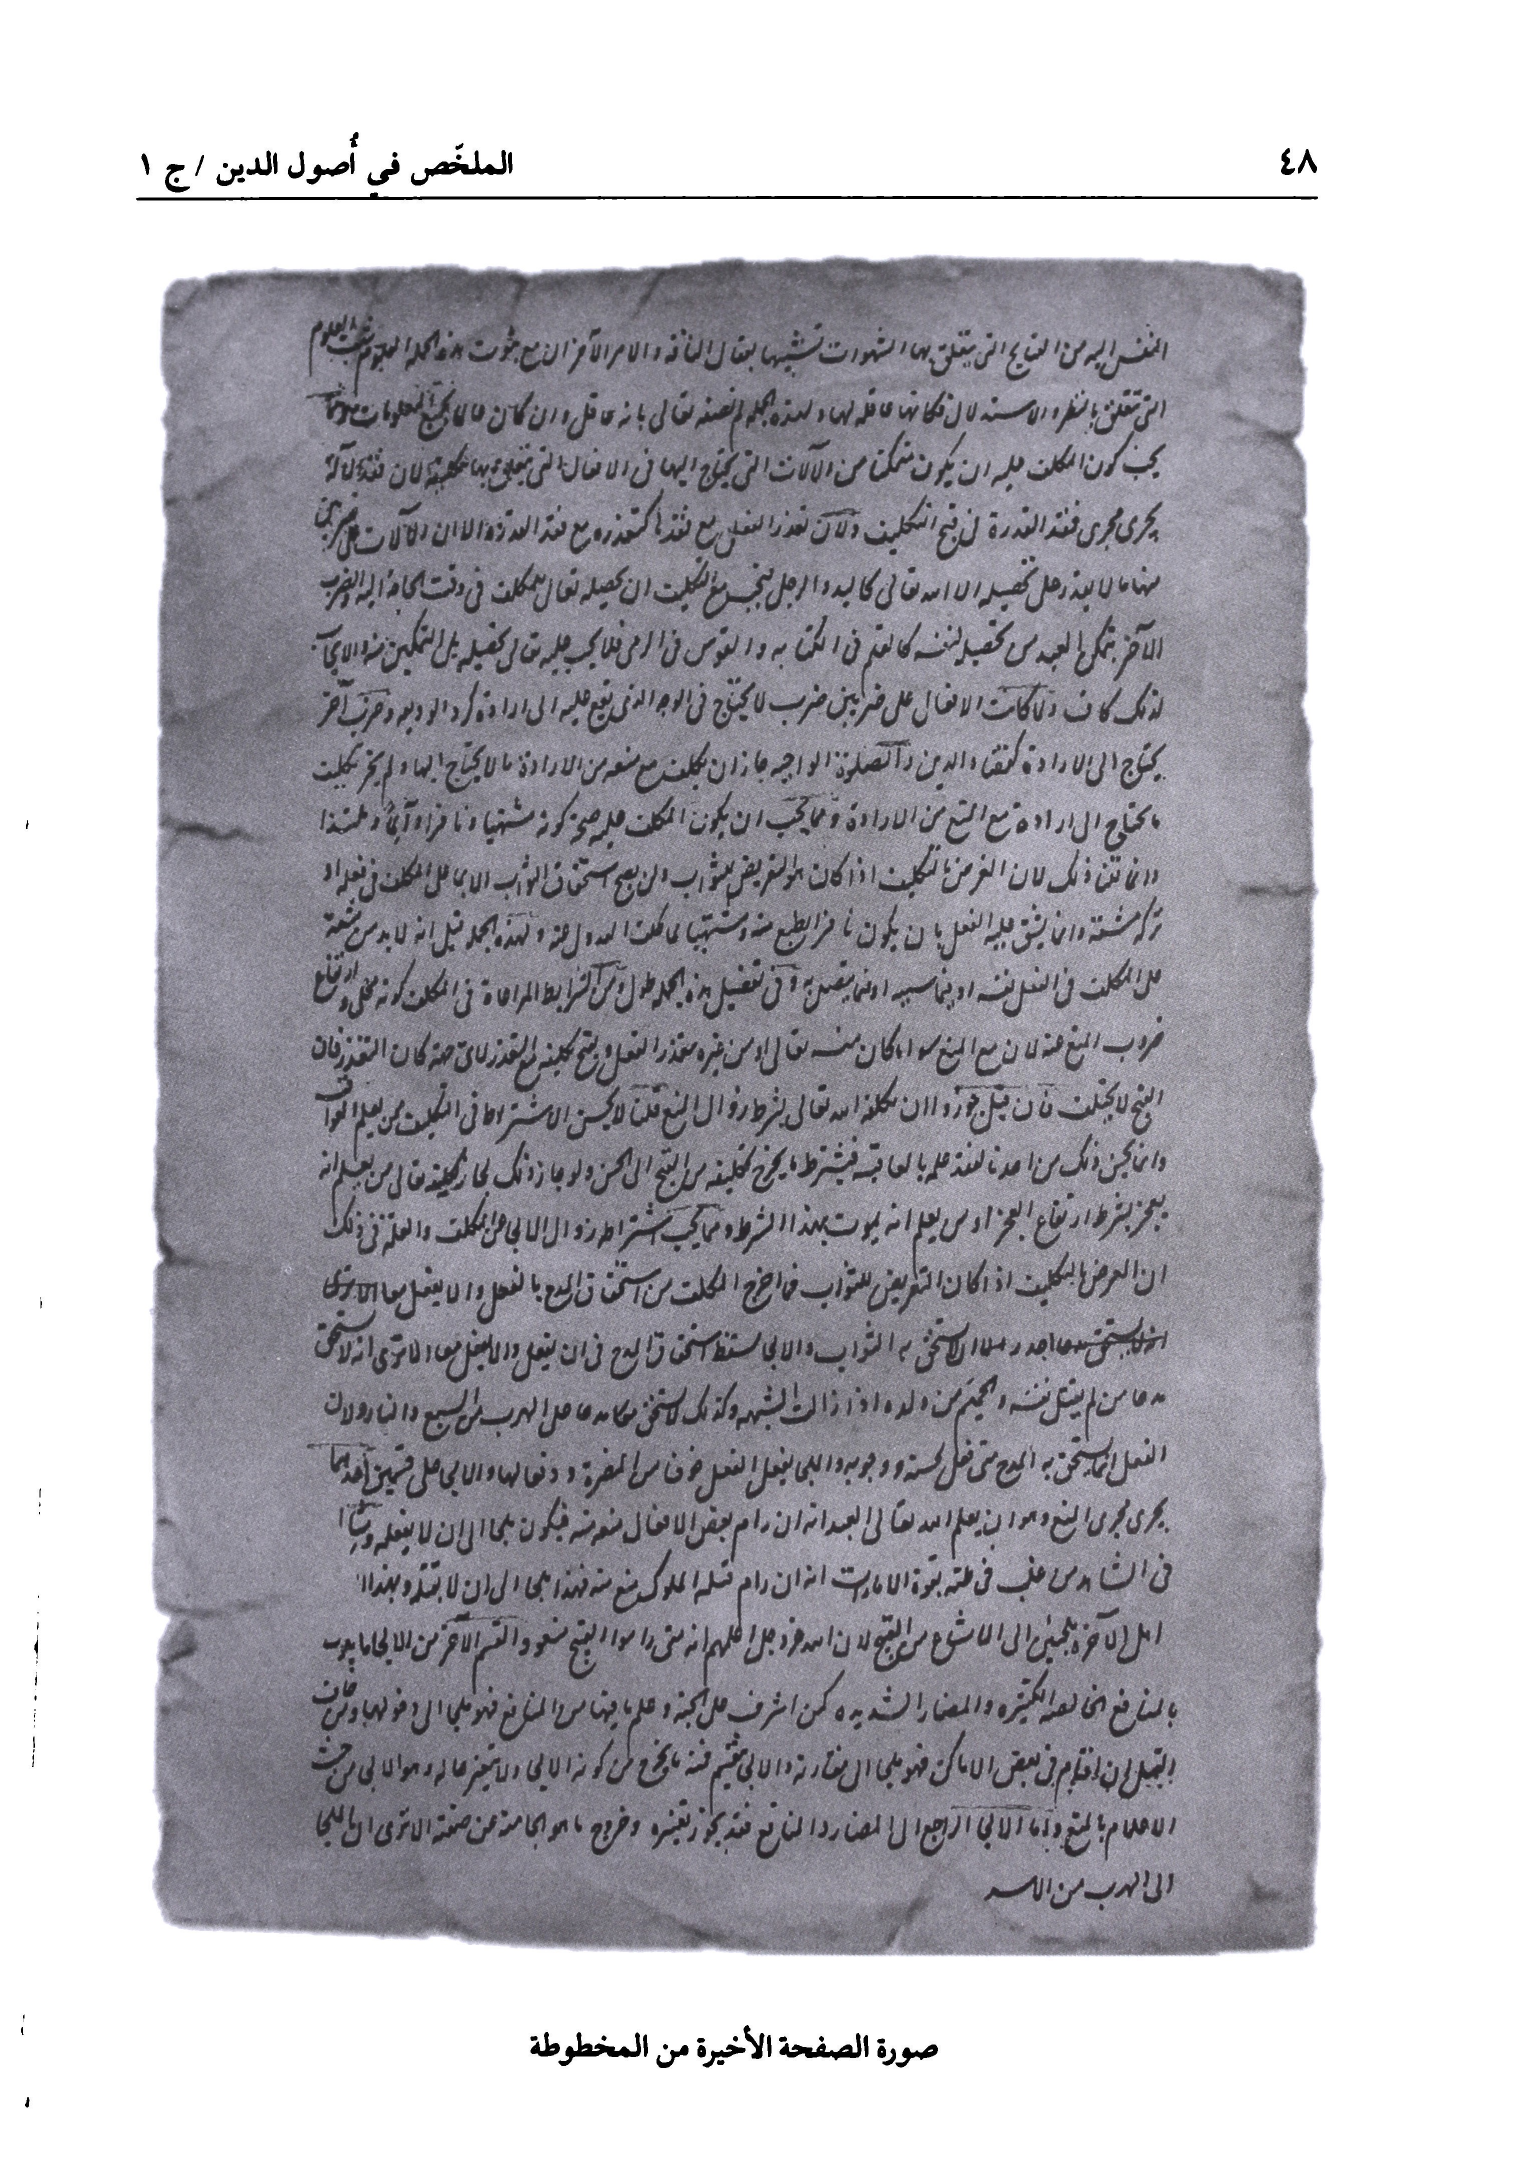 ٤٨ الملخّص في أُصول الدين / ج ١
النفس اليه من القبايح التى يتعلق بها الشهوات تشبيها بعقال الناقة والامر الآخر ان مع ثبوت هذه الجملة العلوم
التى تتعلق بالنظر والاستدلال فكانها عاقلة لها ولهذه الجملة لم نصفه تعالى بانه عاقل وان كان عالما بجميع المعلومات
يجب كون المكلف عليه ان يكون متمكنا من الآلات التى يحتاج اليها فى الافعال التى يتعلق بها تكليفه لان فقد الآلة
يجرى مجرى فقد القدرة فى قبح التكليف ولان تعذر الفعل مع فقدها كتعذره مع فقد القدرة الا ان الآلات على ضربين
منها ما لا يقدر على تحصيله الا الله تعالى كاليد والرجل فيجب مع التكليف ان يحصله تعالى للمكلف فى وقت الحاجة اليه والضرب
الآخر يتمكن العبد من تحصيله لنفسه كالقلم فى الكتابة والقوس فى الرمى فلا يجب عليه تعالى تحصيله بل التمكين منه والايجاب
لذلك كاف ولما كانت الافعال على ضربين ضرب لا يحتاج فى الوجه الذى يقع عليه الى ارادة كرد الوديعه وضرب آخر
يحتاج الى الارادة كقضاء الدين والصلوة الواجبه جاز ان يكلف مع منعه من الارادة ما لا يحتاج اليها ولم يجز تكليف
ما يحتاج الى ارادة مع المنع من الارادة ومما يجب ان يكون المكلف عليه صحة كونه مشتهيا ونافرا وآلما وملتذا
وانما قلنا ذلك لان الغرض بالتكليف اذا كان هو التعريض للثواب ولن يصح استحقاق الثواب الا بما على المكلف فى فعله او
تركه مشقة وانما يشق عليه الفعل بان يكون نافر الطبع منه ومشتهيا لما كلف العدول عنه ولهذه الجملة قيل انه لا بد من مشقة
على المكلف فى الفعل نفسه او فيما سببه او فيما يتصل به وفى تفصيل هذه الجملة طول ومن الشرايط المراعاة فى المكلف كونه مخلى وارتفاع
ضروب المنع عنه لان مع المنع سواء كان منه تعالى او من غيره يتعذر الفعل ويقبح تكليفه مع التعذر لاى جهة كان التعذر فان
القبح لا يختلف فان قيل جوزوا ان يكلفه الله تعالى بشرط زوال المنع قلنا لا يحسن الاشتراط فى التكليف ممن يعلم العواقب
وانما يحسن ذلك من احدنا لفقد علمه بالعاقبه فيشترط ما يخرج تكليفه من القبح الى الحسن ولو جاز ذلك لجاز تكليفه تعالى من يعلم انه
يعجز بشرط ارتفاع العجز او من يعلم انه يموت بهذا الشرط ومما يجب اشتراطه زوال الالجاء عن المكلف والعلة فى ذلك
ان الغرض بالتكليف اذا كان التعريض للثواب فما اخرج المكلف من استحقاق المدح بالفعل والا يفعل معا
به الثواب والالجاء يسقط استحقاق المدح فى ان يفعل والا يفعل معا الا ترى انه لا يستحق
مدحا من لم يقتل نفسه و من ولده اذا زالت الشبهه وكذلك لا يستحق مدحا على الهرب من السبع والنار ولان
الفعل انما يستحق به المدح متى فعل لحسنه ووجوبه والملجأ يفعل الفعل خوفا من المضرة ودفعا لها والالجاء على قسمين احدهما
يجرى مجرى المنع وهو ان يعلم الله تعالى العبد انه ان رام بعض الافعال منعه منه فيكون ملجأ الى ان لا يفعله
فى الشاهد من غلب فى ظنه بقوة الامارات انه ان رام قتل الملوك منع منه فهذا ملجأ الى ان لا يقتله وبهذا
اهل الآخرة ملجئين الى الامتناع من القبيح لان الله عز وجل اعلمهم انه متى راموا القبيح منعوا والقسم الآخر من الالجاء ما يكون
بالمنافع الخالصة الكثيره والمضار الشديده كمن اشرف على الجنة وعلم ما فيها من المنافع فهو ملجأ الى دخولها ومن خاف
القتل ان اقام فى بعض الاماكن فهو ملجأ الى مفارقته والالجاء ينقسم فمنه ما يخرج من كونه الالجاء ولا يتغير حاله وهو الالجاء من حيث
الاعلام بالمنع واما الالجاء الراجع الى المضار والمنافع فقد يجوز تغيره وخروج ما هو الجاء منه عن صفته الا ترى ان الملجأ
الى الهرب من الاسد
صورة الصفحة الأخيرة من المخطوطة